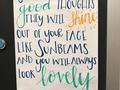 good THOUGHTS
THEY WILL Shine
OUT OF YOUR FACE
LIKE SUNBEAMS
AND YOU WILL ALWAYS
LOOK lovely